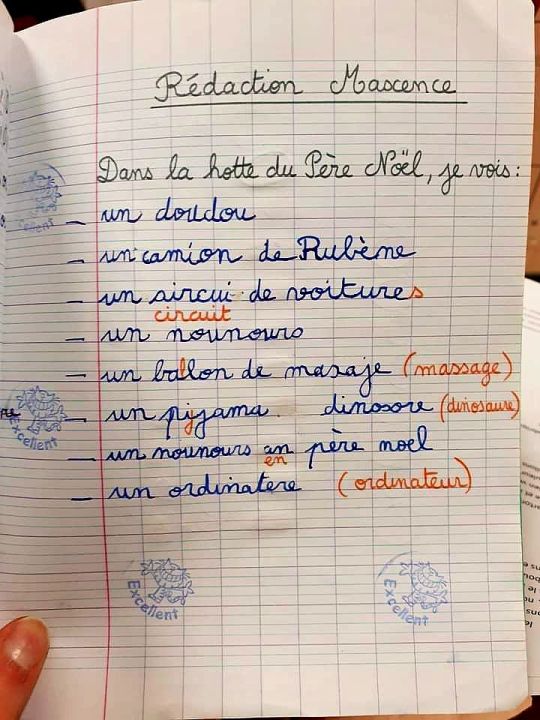 Rédaction Maxence
Dans la hotte du Père Noël, je vois :
Excellent
– un doudou
– un camion de Rubène
– un sircui de voitures
circuit
– un nounours
– un ballon de masaje (massage)
– un pyjama. dinosore (dinosaure)
Excellent
– un nounours an père noel
en
– un ordinatere (ordinateur)
Excellent
Excellent